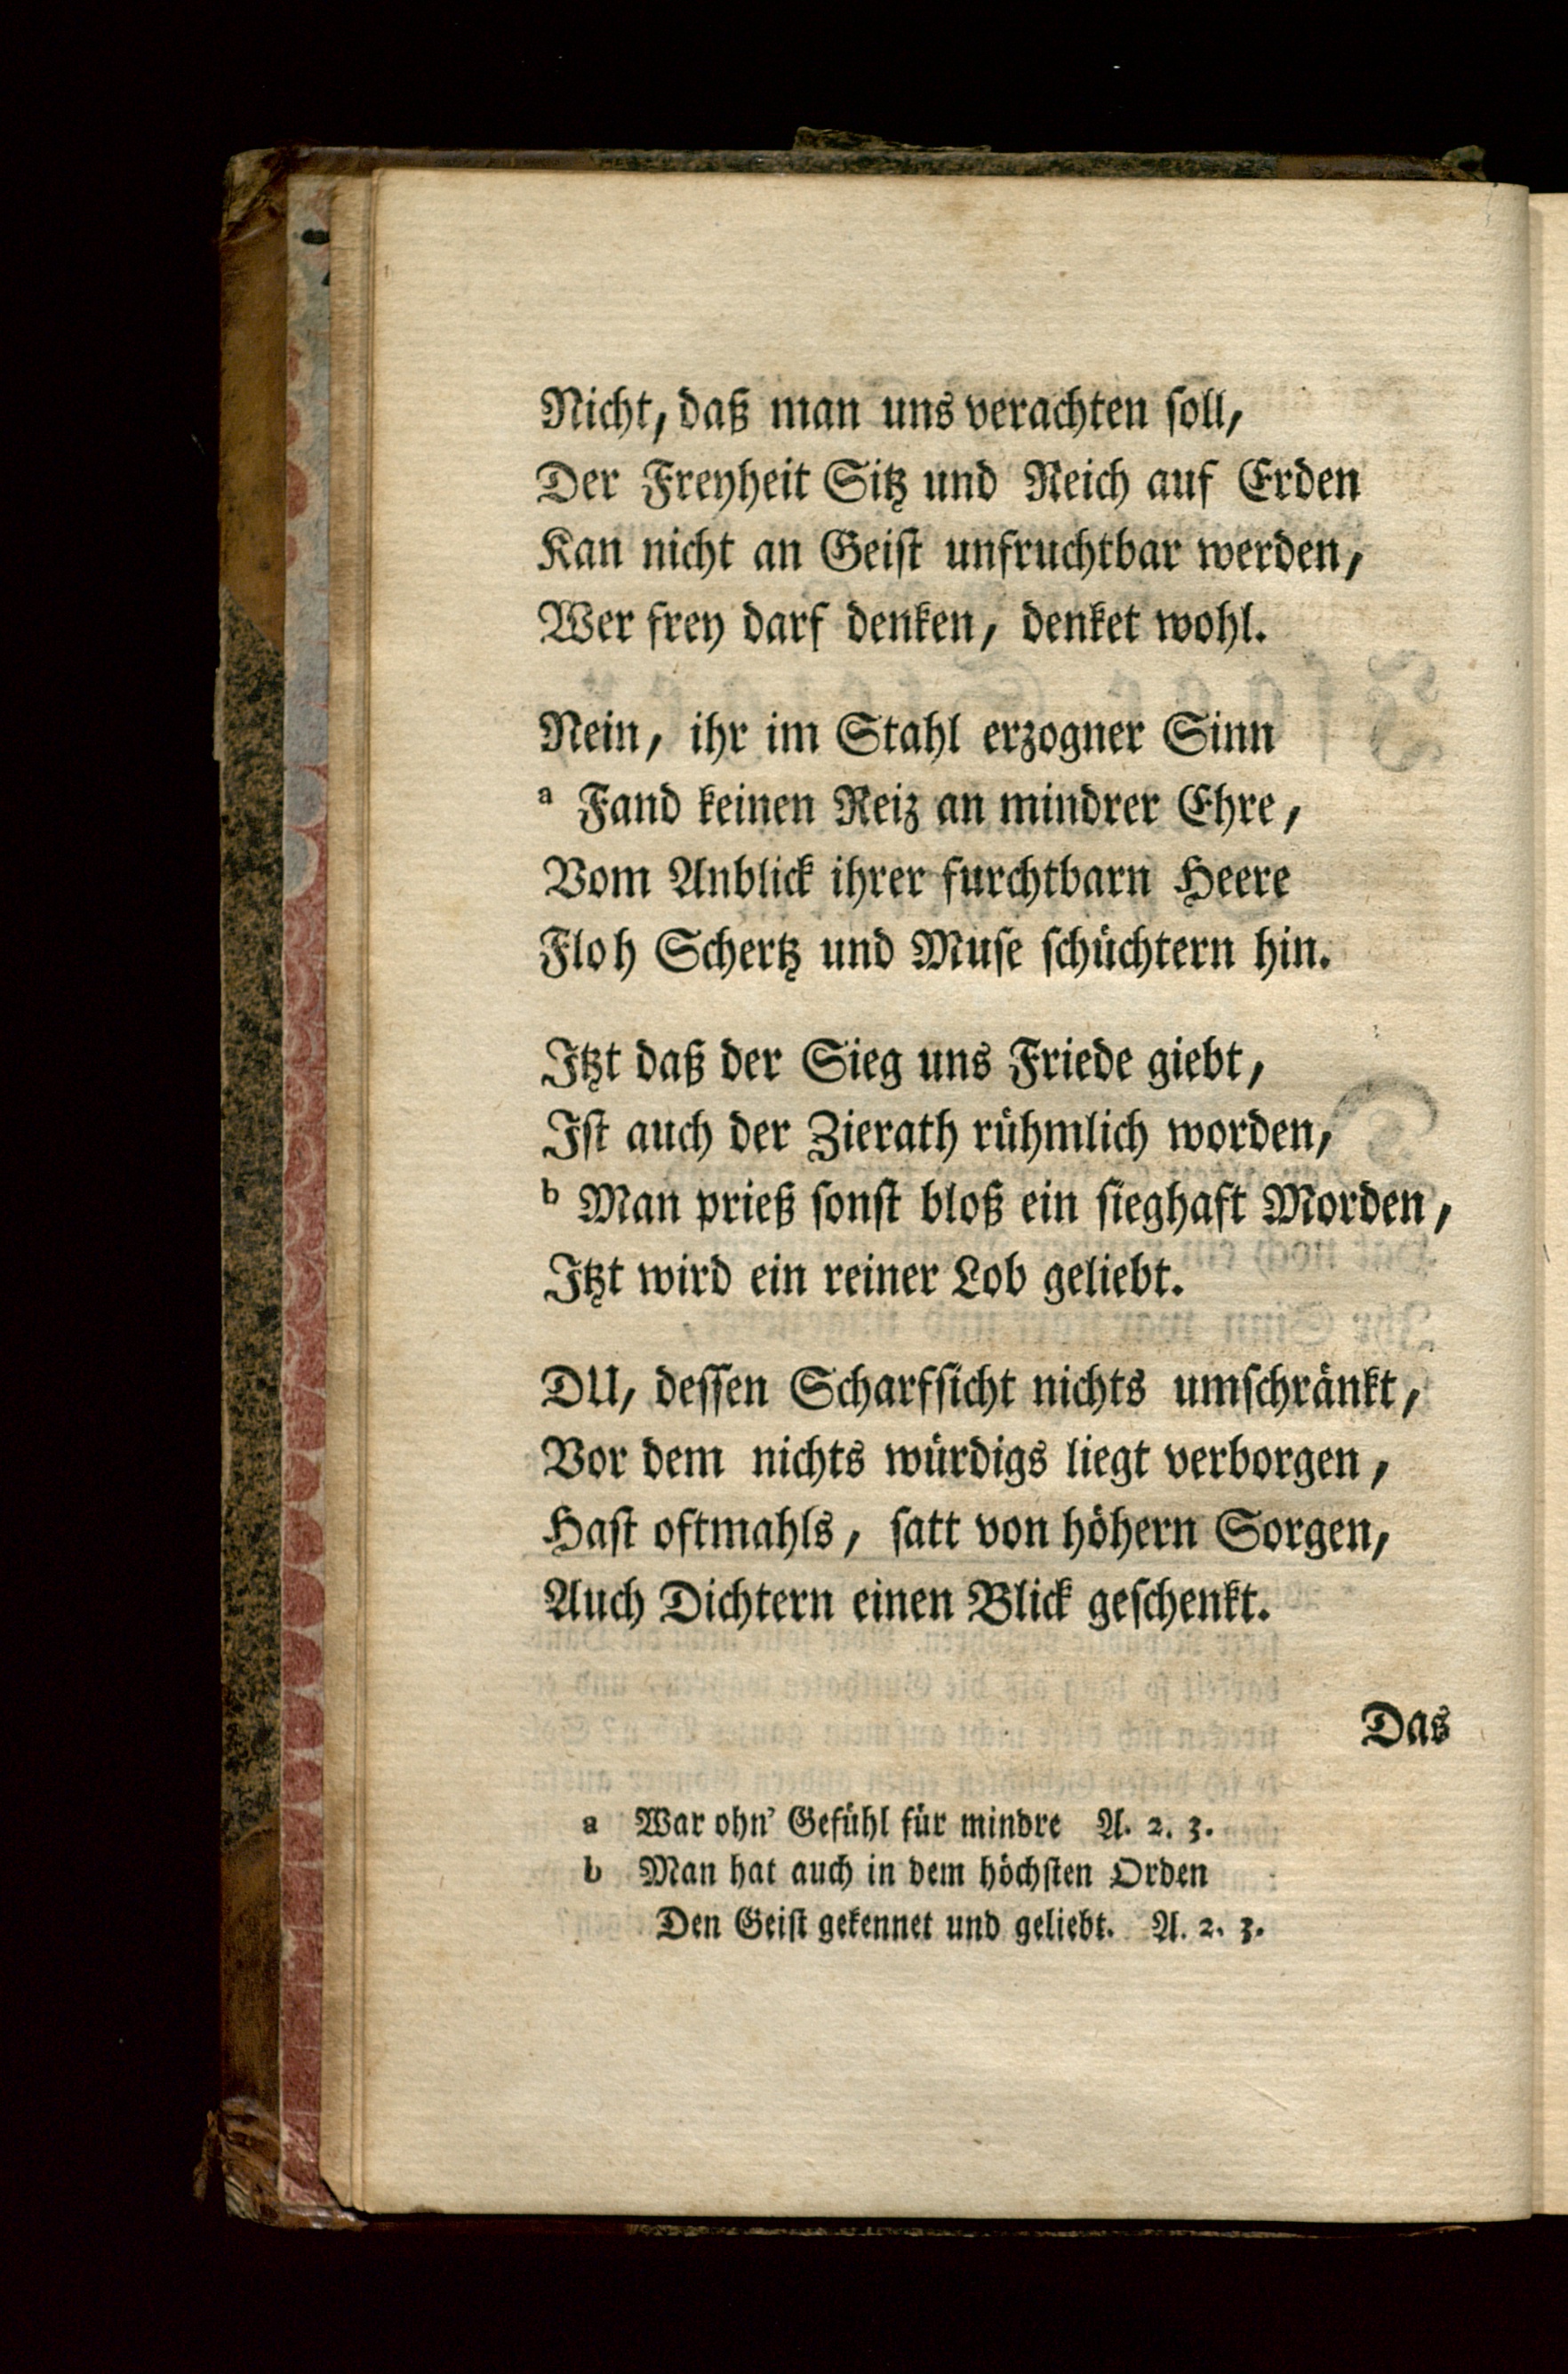 Nicht, daß man uns verachten ſoll,
Der Freyheit Sitz und Reich auf Erden
Kan nicht an Geiſt unfruchtbar werden,
Wer frey darf denken, denket wohl.
Nein, ihr im Stahl erzogner Sinn
a Fand keinen Reiz an mindrer Ehre,
Vom Anblick ihrer furchtbarn Heere
Floh Schertz und Muſe ſchüchtern hin.
Itzt daß der Sieg uns Friede giebt,
Iſt auch der Zierath rühmlich worden,
b Man prieß ſonſt bloß ein ſieghaft Morden,
Itzt wird ein reiner Lob geliebt.
DU, deſſen Scharfſicht nichts umſchränkt,
Vor dem nichts würdigs liegt verborgen,
Haſt oftmahls, ſatt von höhern Sorgen,
Auch Dichtern einen Blick geſchenkt.
Das
a War ohn' Gefühl für mindre A. 2. 3.
b Man hat auch in dem höchſten Orden
Den Geiſt gekennet und geliebt. A. 2. 3.